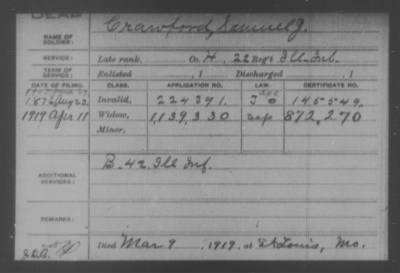 DEAD
Crawford, Samuel J.
NAME OF SOLDIER:
SERVICE: Late rank, Co. H, 22 Reg't Ill. Inf.
TERM OF SERVICE: Enlisted , 1 Discharged , 1
DATE OF FILING. CLASS. APPLICATION NO. LAW. CERTIFICATE NO.
1876 Aug 22. Invalid, 224391. 145549.
1919 Apr 11 Widow, 1,139,330 872,270
Minor,
B. 42 Ill Inf.
ADDITIONAL SERVICES:
REMARKS:
Died Mar 9, 1919, at St Louis, Mo.